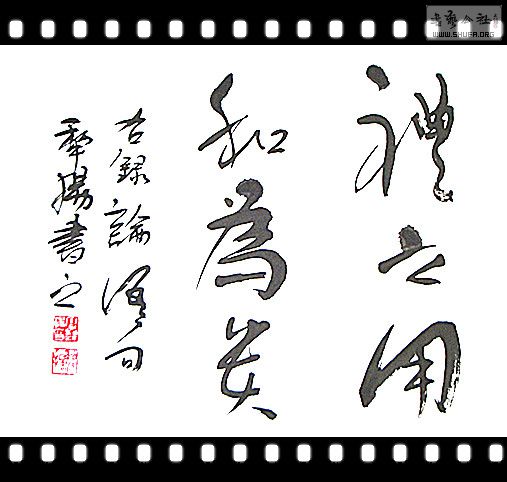 書藝公社
WWW.SHUFA.ORG
禮之用
和為貴
右錄論語句
書之